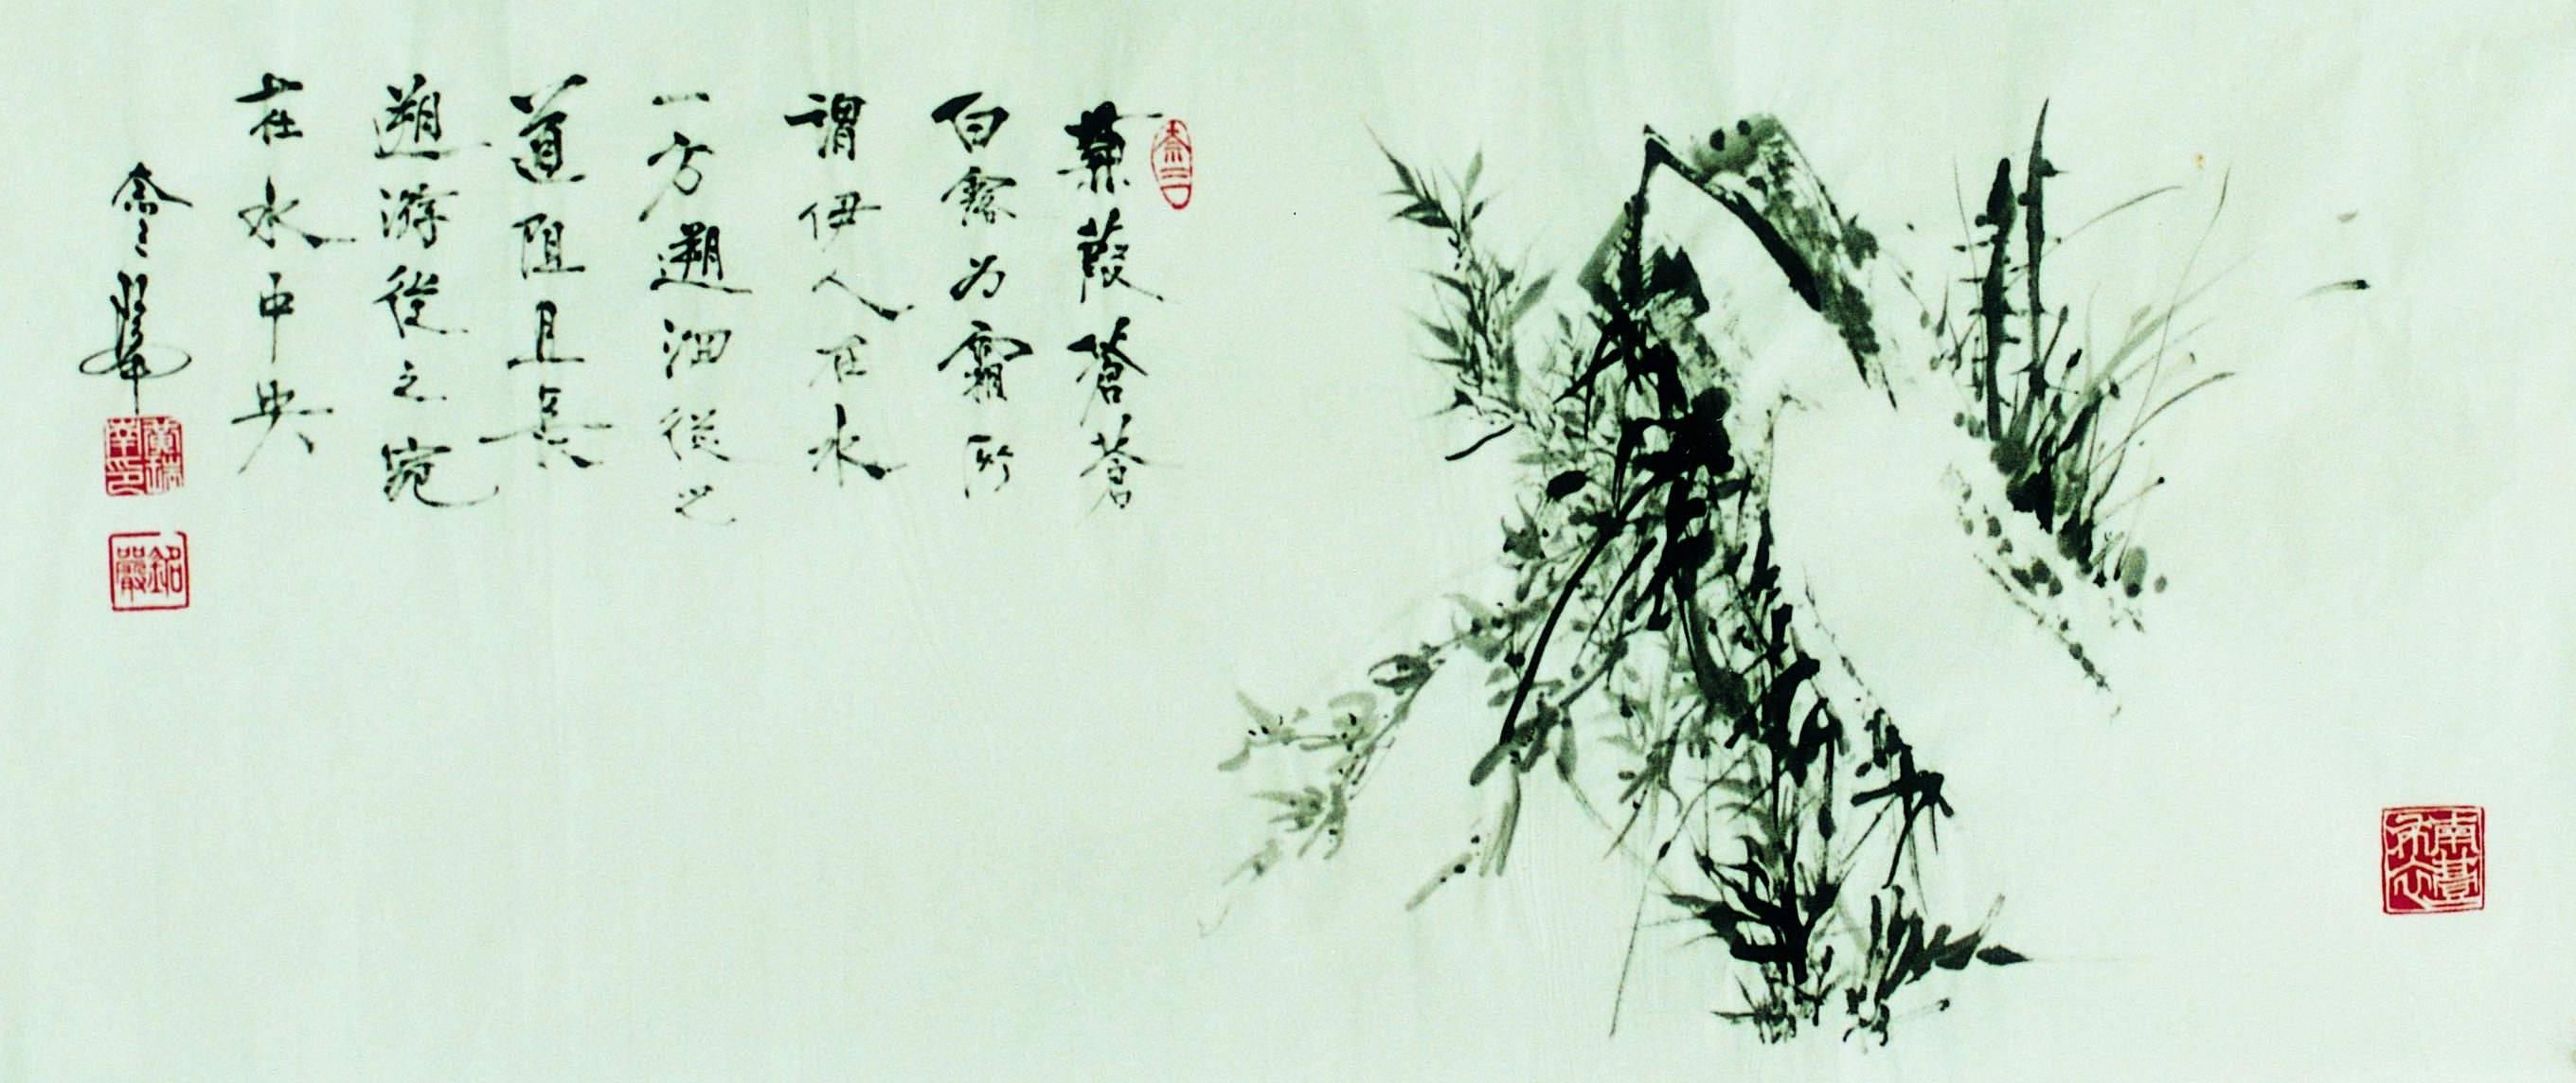 蒹葭蒼蒼
白露为霜所
謂伊人在水
一方遡洄從之
道阻且長
遡游從之宛
在水中央
銘嚴